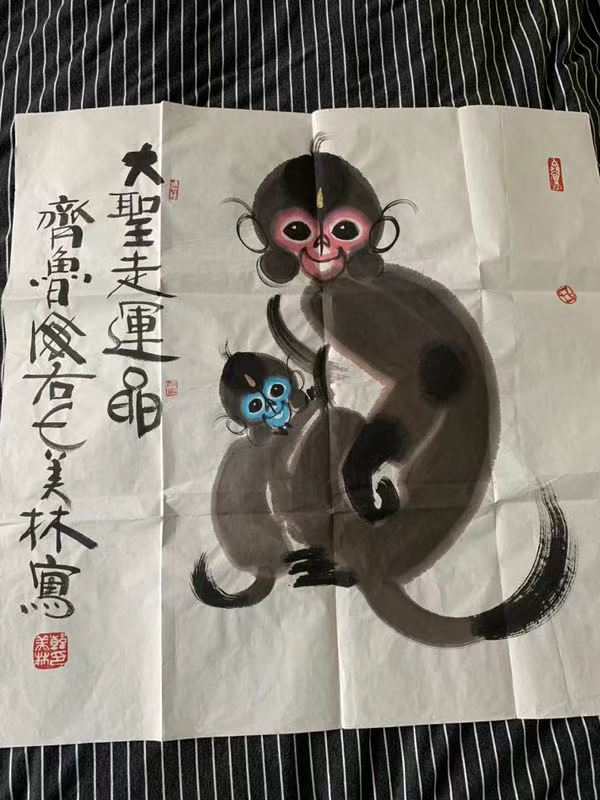 大聖走運晶
齊魯海右美林寫
韓美林印